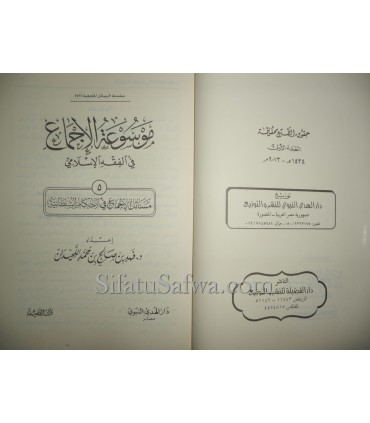 حقوق الطبع محفوظة
الطبعة الأولى
١٤٣٤هـ - ٢٠١٣م
توزيع
دار الهدي النبوي للنشر والتوزيع
جمهورية مصر العربية - المنصورة
الناشر
دار الفضيلة للنشر والتوزيع
سلسلة الرسائل الجامعية
موسوعة الإجماع
في الفقه الإسلامي
٥
مسائل الإجماع في الأحكام السلطانية
إعداد
د. فهد بن صالح بن محمد اللحيدان
دار الهدي النبوي
مصر
دار الفضيلة
SifatuSafwa.com